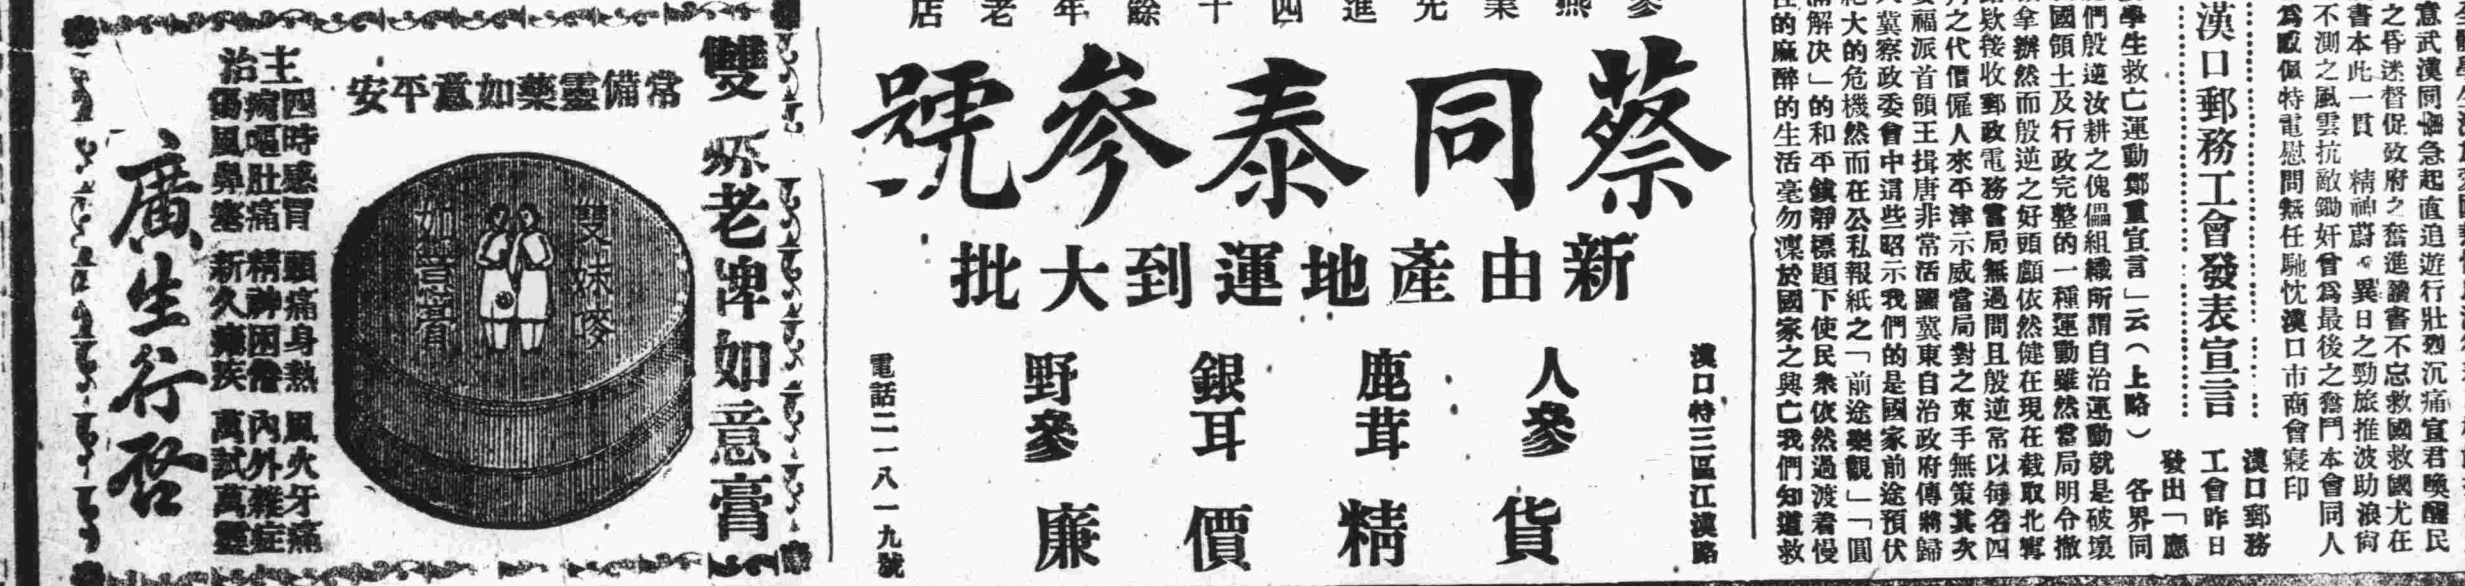 之昏迷督促政府之奮進讀書不忘救國救國尤在
書本此一貫　精神蔚　異日之勁旅推波助浪尙
不測之風雲抗敵鋤奸會爲最後之奮鬥本會同人
爲佩特電慰問無任馳忱漢口市商會寢印
漢口郵務工會發表宣言
漢口郵務
工會昨日
發出「應
學生救亡運動鄭重宣言」云（上略）　各界同
們殷逆汝耕之傀儡組織所謂自治運動就是破壞
國領土及行政完整的一種運動雖然當局明令撤
拿辦然而殷逆之好頭顱依然健在現在截取北寧
路欵接收郵政電務當局無過問且殷逆常以每名四
之代價僱人來平津示威當局對之束手無策其次
安福派首領王揖唐非常活躍冀東自治政府傳將歸
冀察政委會中這些昭示我們的是國家前途預伏
絕大的危機然而在公私報紙之「前途樂觀」「圓
滿解决」的和平鎮靜標題下使民衆依然過渡着慢
性的麻醉的生活毫勿凜於國家之興亡我們知道救
參燕業先進四十餘年老店
蔡同泰參號
新由產地運到大批
漢口特三區江漢路
人參
鹿茸
銀耳
野參
貨精價廉
電話二一八一九號
雙妹老牌如意膏
常備靈藥如意平安
雙妹嘜
如意膏
主治
四時感冒　頭痛身熱　風火牙痛
痾嘔肚痛　精神困倦　內外雜症
傷風鼻塞　新久癱疾　萬試萬靈
廣生行啓